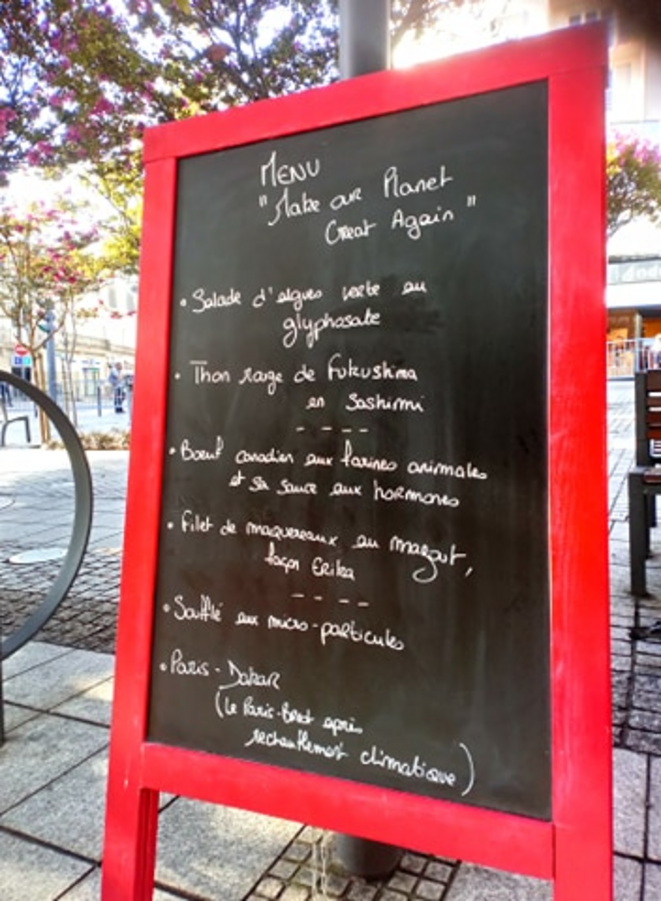 MENU
"Make our Planet
Great Again"
• Salade d'algues verte au
glyphosate
• Thon rouge de Fukushima
en Sashimi
- - - -
• Bœuf canadien aux farines animales
et sa sauce aux hormones
• Filet de maquereaux au mazout,
façon Erika
- - - -
• Soufflé aux micro-particules
• Paris-Dakar
(Le Paris-Brest après
réchauffement climatique)